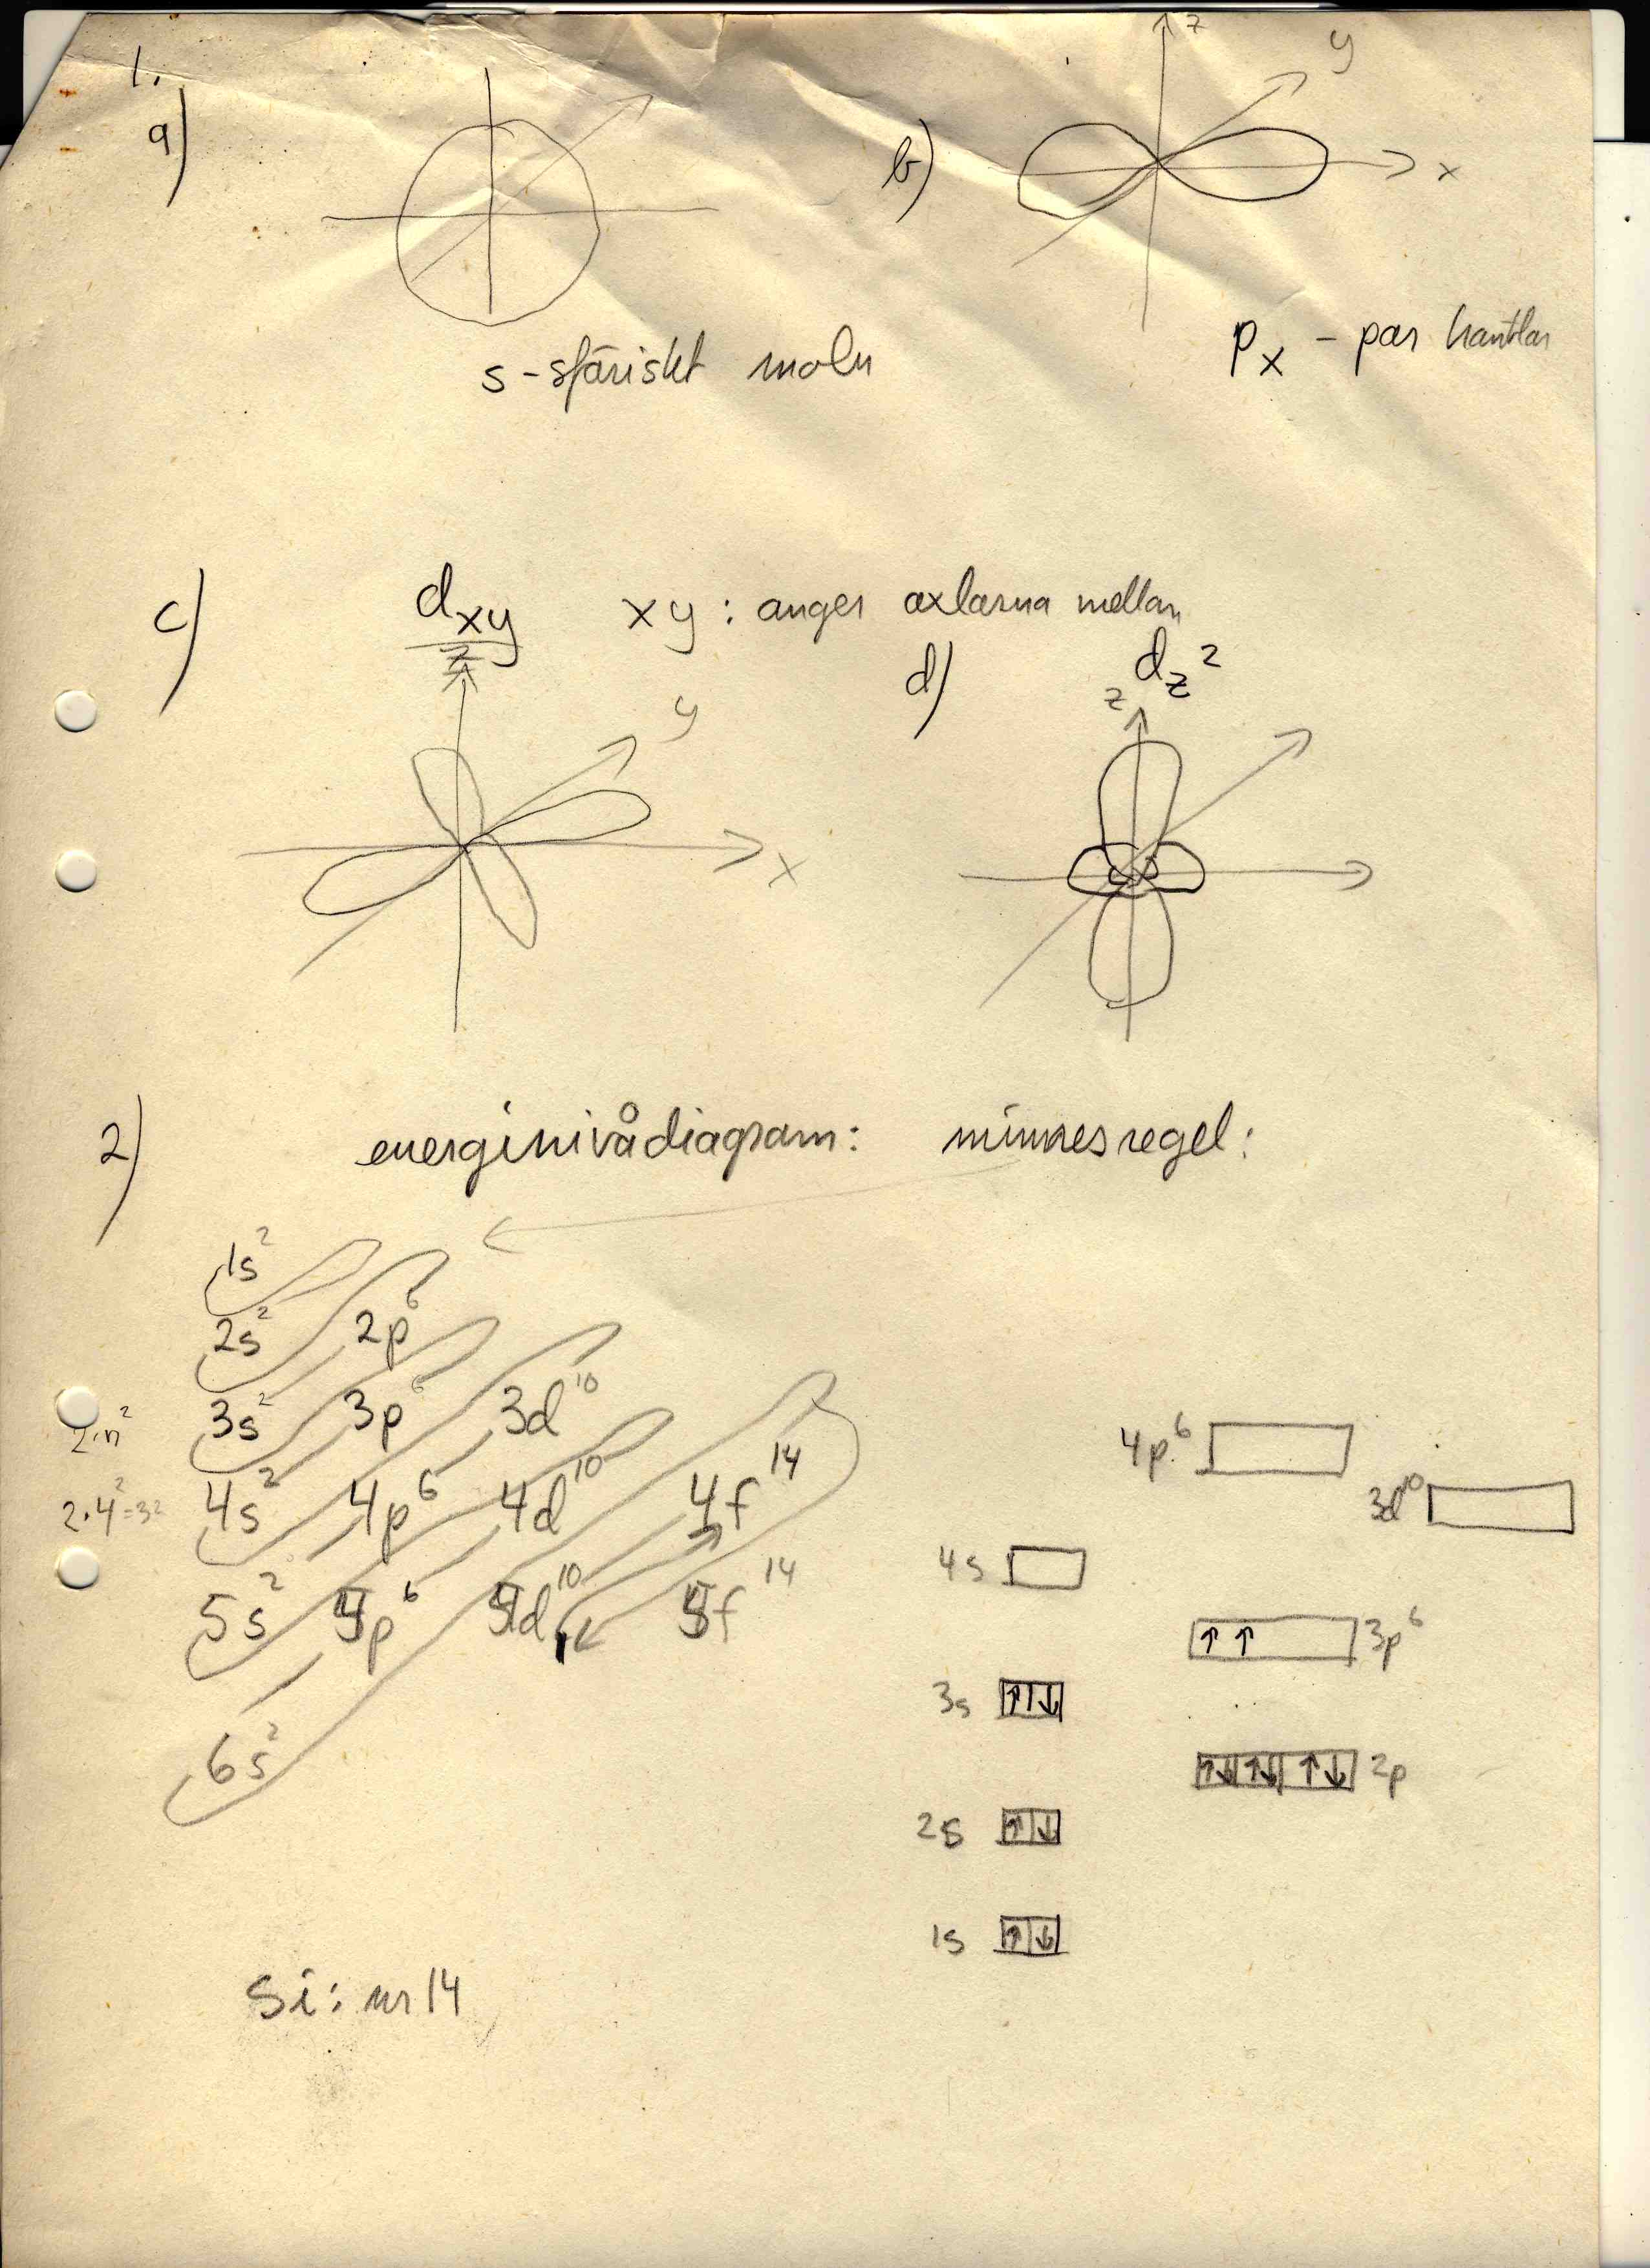 1.
a)
z
y
b)
x
s-sfäriskt moln
px - par hantlar
c)
dxy xy: anger axlarna mellan
z
y
x
d)
dz²
z
2)
energinivådiagram: minnesregel:
1s²
2s² 2p⁶
3s² 3p⁶ 3d¹⁰
2·n²
4s² 4p⁶ 4d¹⁰ 4f¹⁴
2·4²=32
5s² 5p⁶ 5d¹⁰ 5f¹⁴
6s²
4p⁶
3d¹⁰
4s
↑ ↑ 3p⁶
3s ↑↓
↑↓ ↑↓ ↑↓ 2p
2s ↑↓
1s ↑↓
Si: nr 14